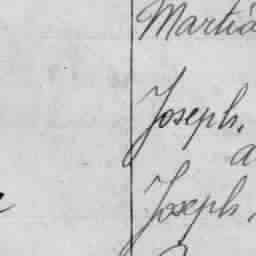 Martia
Joseph.
a
Joseph